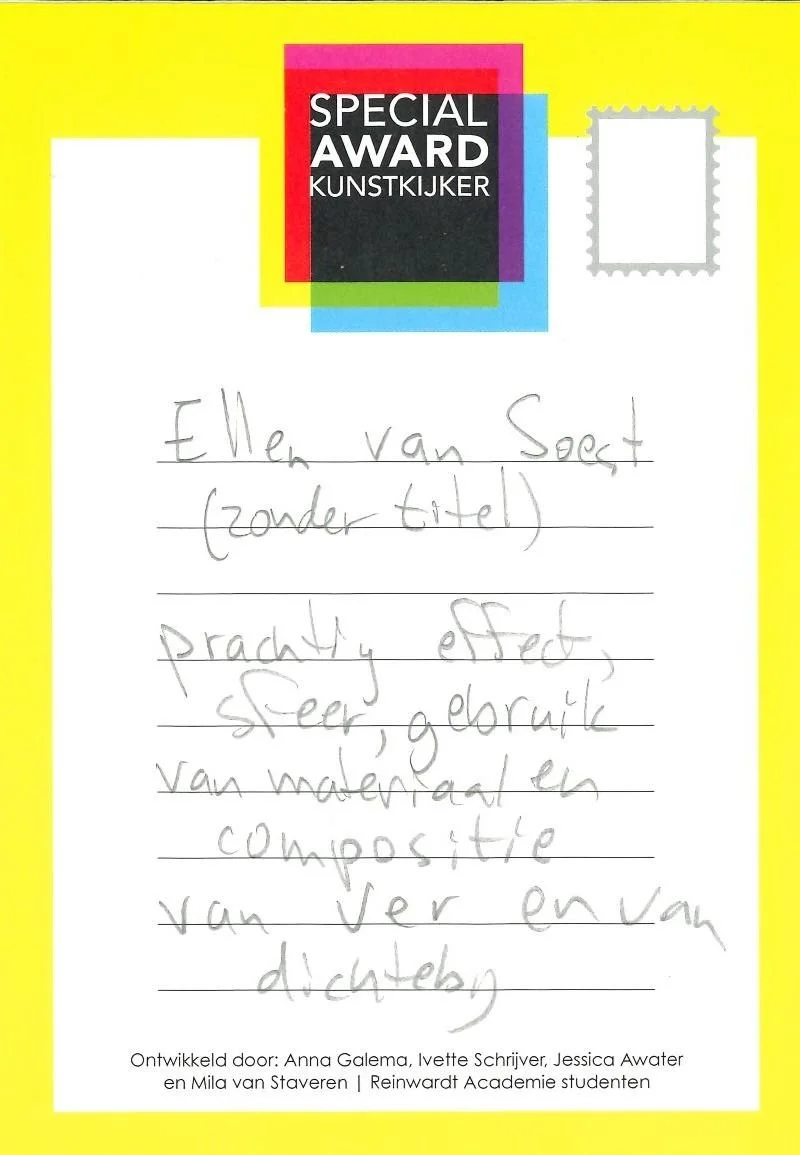 SPECIAL
AWARD
KUNSTKIJKER
Ellen van Soest
(zonder titel)
prachtig effect,
sfeer, gebruik
van materiaal en
compositie
van ver en van
dichteby
Ontwikkeld door: Anna Galema, Ivette Schrijver, Jessica Awater
en Mila van Staveren | Reinwardt Academie studenten